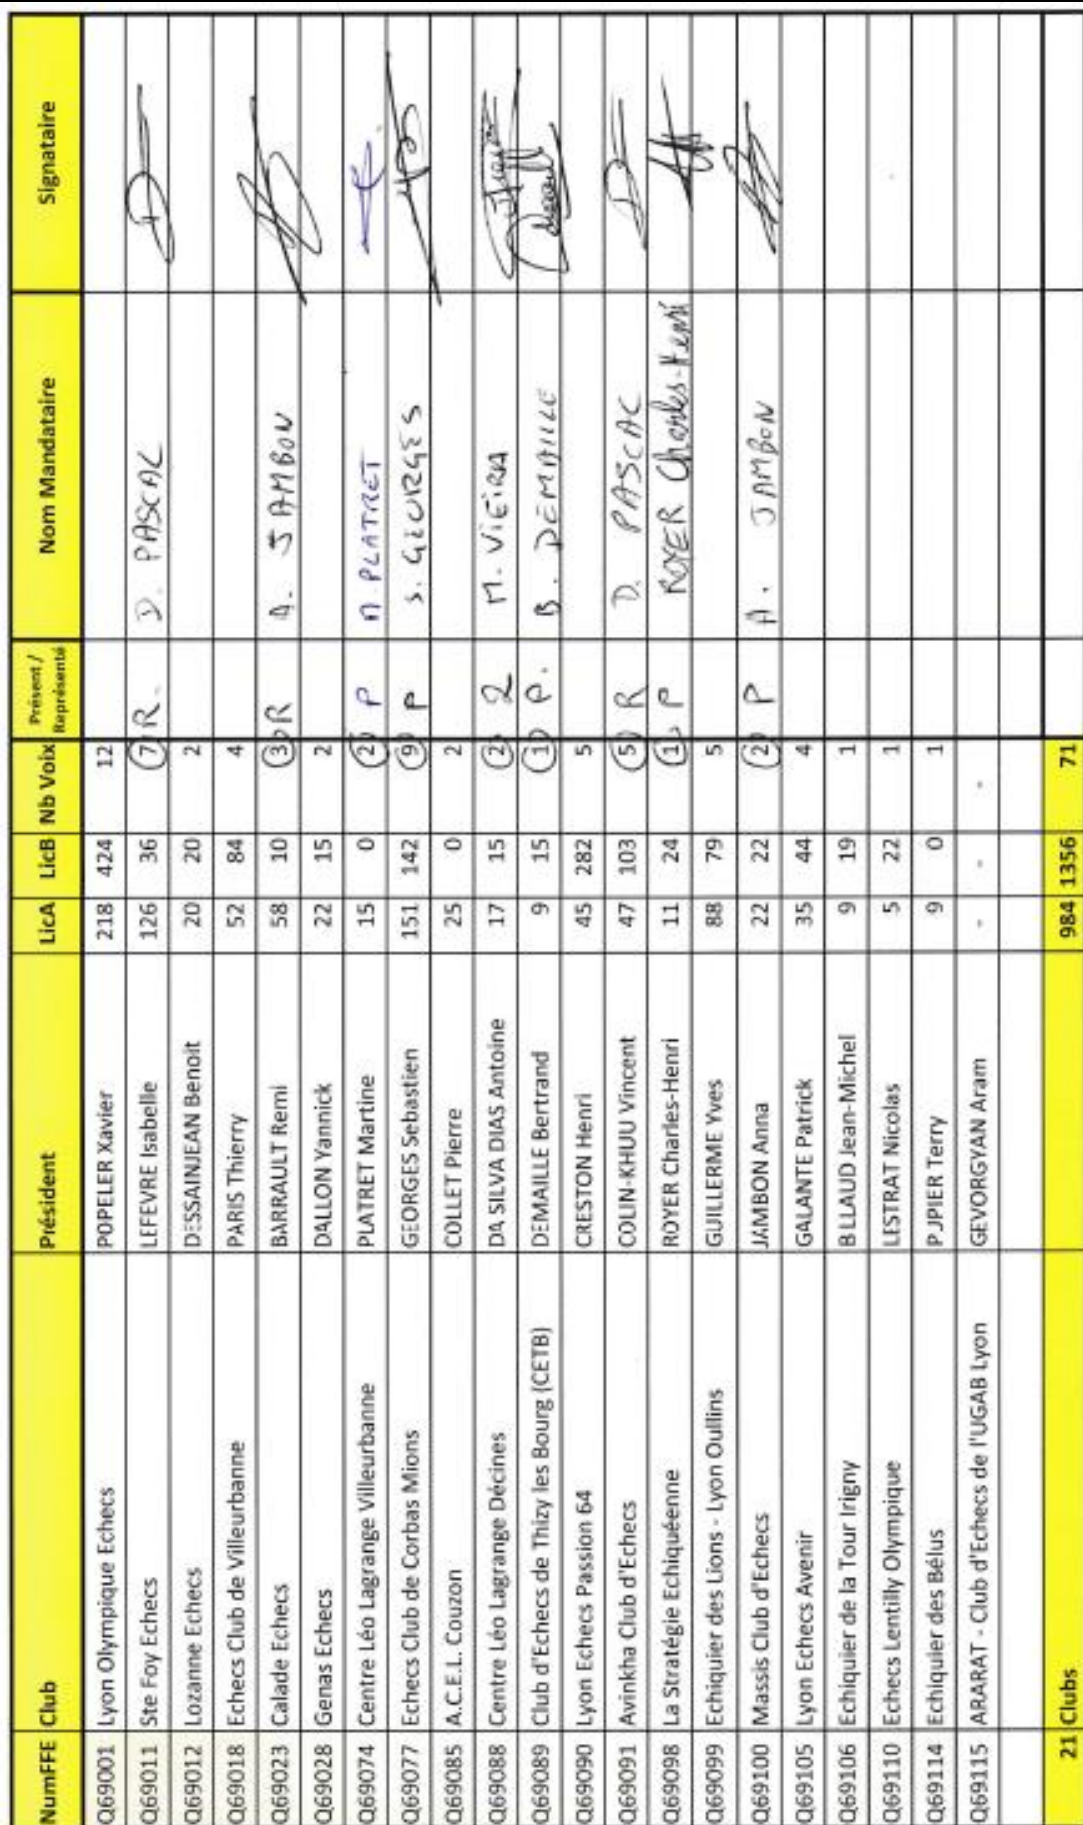 NumFFE Club Président LicA LicB Nb Voix Présent / Représenté Nom Mandataire Signataire
Q69001 Lyon Olympique Echecs POPELER Xavier 218 424 12
Q69011 Ste Foy Echecs LEFEVRE Isabelle 126 36 7 R. D. PASCAL
Q69012 Lozanne Echecs DESSAINJEAN Benoit 20 20 2
Q69018 Echecs Club de Villeurbanne PARIS Thierry 52 84 4
Q69023 Calade Echecs BARRAULT Remi 58 10 3 R A. JAMBON
Q69028 Genas Echecs DALLON Yannick 22 15 2
Q69074 Centre Léo Lagrange Villeurbanne PLATRET Martine 15 0 2 P M. PLATRET
Q69077 Echecs Club de Corbas Mions GEORGES Sebastien 151 142 9 P S. GEORGES
Q69085 A.C.E.L. Couzon COLLET Pierre 25 0 2
Q69088 Centre Léo Lagrange Décines DA SILVA DIAS Antoine 17 15 2 R M. VIEIRA
Q69089 Club d'Echecs de Thizy les Bourg (CETB) DEMAILLE Bertrand 9 15 1 P. B. DEMAILLE
Q69090 Lyon Echecs Passion 64 CRESTON Henri 45 282 5
Q69091 Avinkha Club d'Echecs COLIN-KHUU Vincent 47 103 5 R D. PASCAL
Q69098 La Stratégie Echiquéenne ROYER Charles-Henri 11 24 1 P ROYER Charles-Henri
Q69099 Echiquier des Lions - Lyon Oullins GUILLERME Yves 88 79 5
Q69100 Massis Club d'Echecs JAMBON Anna 22 22 2 P A. JAMBON
Q69105 Lyon Echecs Avenir GALANTE Patrick 35 44 4
Q69106 Echiquier de la Tour Irigny B LLAUD Jean-Michel 9 19 1
Q69110 Echecs Lentilly Olympique LESTRAT Nicolas 5 22 1
Q69114 Echiquier des Bélus P JPIER Terry 9 0 1
Q69115 ARARAT - Club d'Echecs de l'UGAB Lyon GEVORGYAN Aram - - -
21 Clubs 984 1356 71